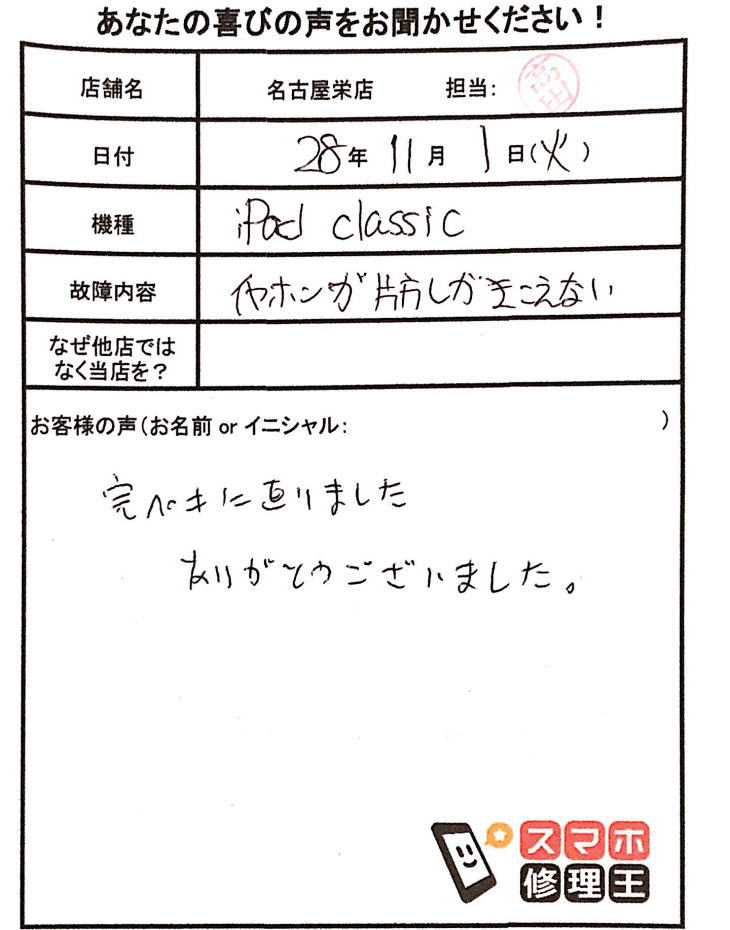 あなたの喜びの声をお聞かせください！
店舗名 名古屋栄店 担当：
日付 28年 11月 1日（火）
機種 iPod classic
故障内容 イヤホンが片方しかきこえない
なぜ他店では
なく当店を？
お客様の声（お名前 or イニシャル： ）
完ペキに直りました
ありがとうございました。
スマホ
修理王